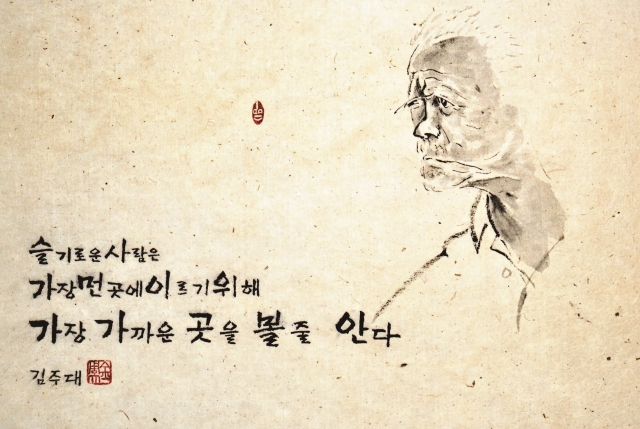 슬기로운 사람은
가장 먼 곳에 이르기 위해
가장 가까운 곳을 볼 줄 안다
김주대